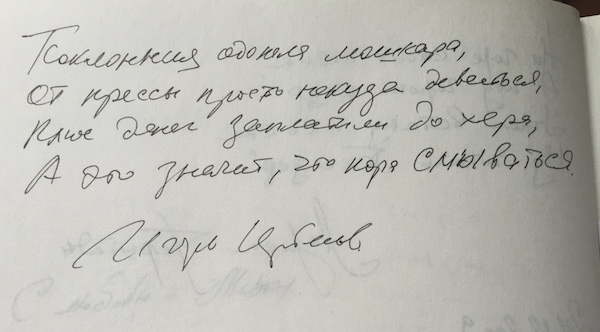 Поклонниц одолела мошкара,
От прессы просто некуда деваться,
Плюс денег заплатили до хера,
А это значит, что пора смываться.
Игорь